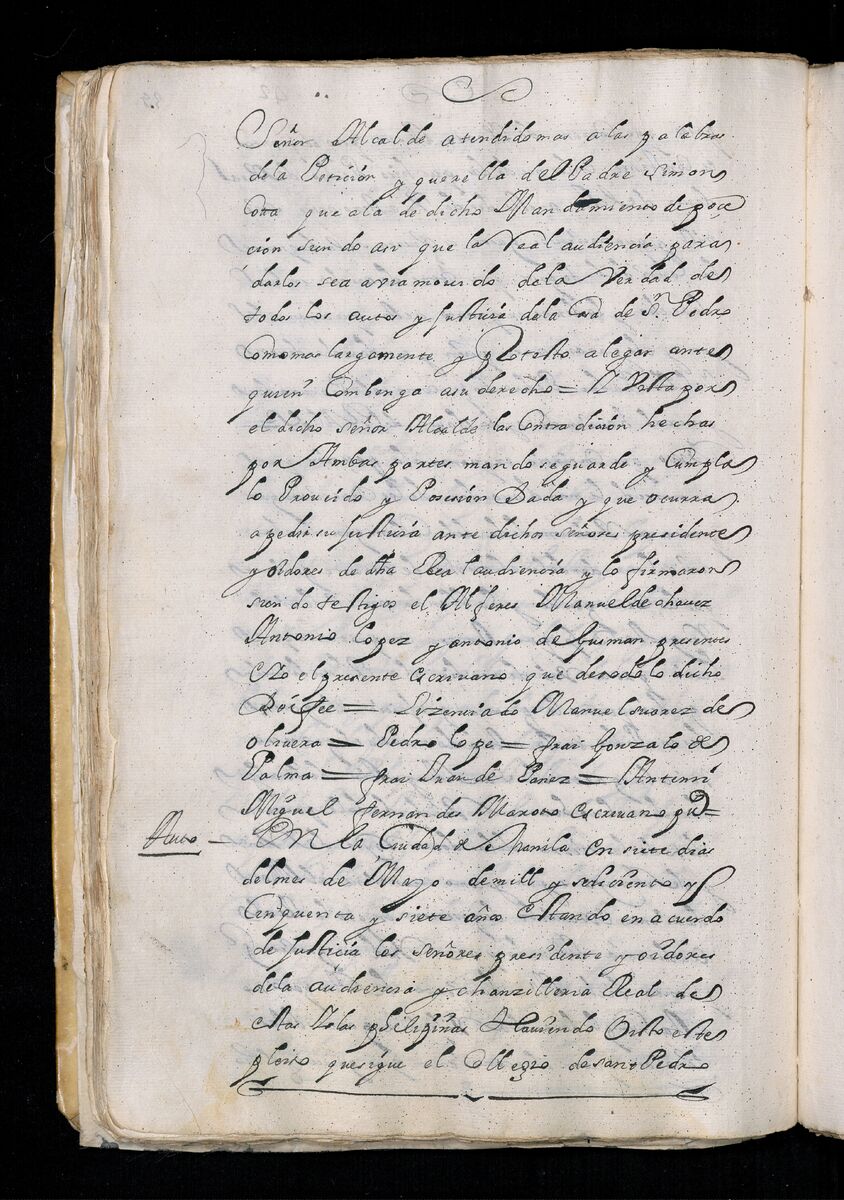 Señor Alcalde atendidomas a las palabras
dela Peticion y querella del Padre Simon
Cotta que ala de dicho Mandamiento de poce
cion siendo asi que la Real audiencia para
darlos sea de la Verdad de
todos los autos y Justicia dela Casa de S.n Pedro
Como mas largamente y Protesto alegar ante
quien Combenga asu derecho = Y Vista por
el dicho señor Alcalde las Contradicion hechas
por Ambas partes mando seguarde y Cumpla
lo Proueido y Posesion Dada y que ocurra
a pedir su Justicia ante dichos señores presidente
y oidores de dha Real audiencia y lo firmaron
siendo testigos el Alferes Manuel de chavez
Antonio lopez y antonio de Gusman presentes
E yo el presente escrivano que de todo lo dicho
Doi fee = Lizenciado Manuel suarez de
olivera = Pedro lope = frai Gonzalo de
Palma = frai Iuan de = Antemi
Miguel fernandes Maroto escrivano pu.co =
Auto - EN la Ciudad de Manila en siete dias
del mes de Mayo demill y seiscientos y
Cinquenta y siete años Estando en acuerdo
de Justicia los señores presidente y oidores
dela audiencia y chanzilleria Real de
estas Yslas philipinas Hauiendo Visto este
pleito quesigue el collegio de sant Pedro